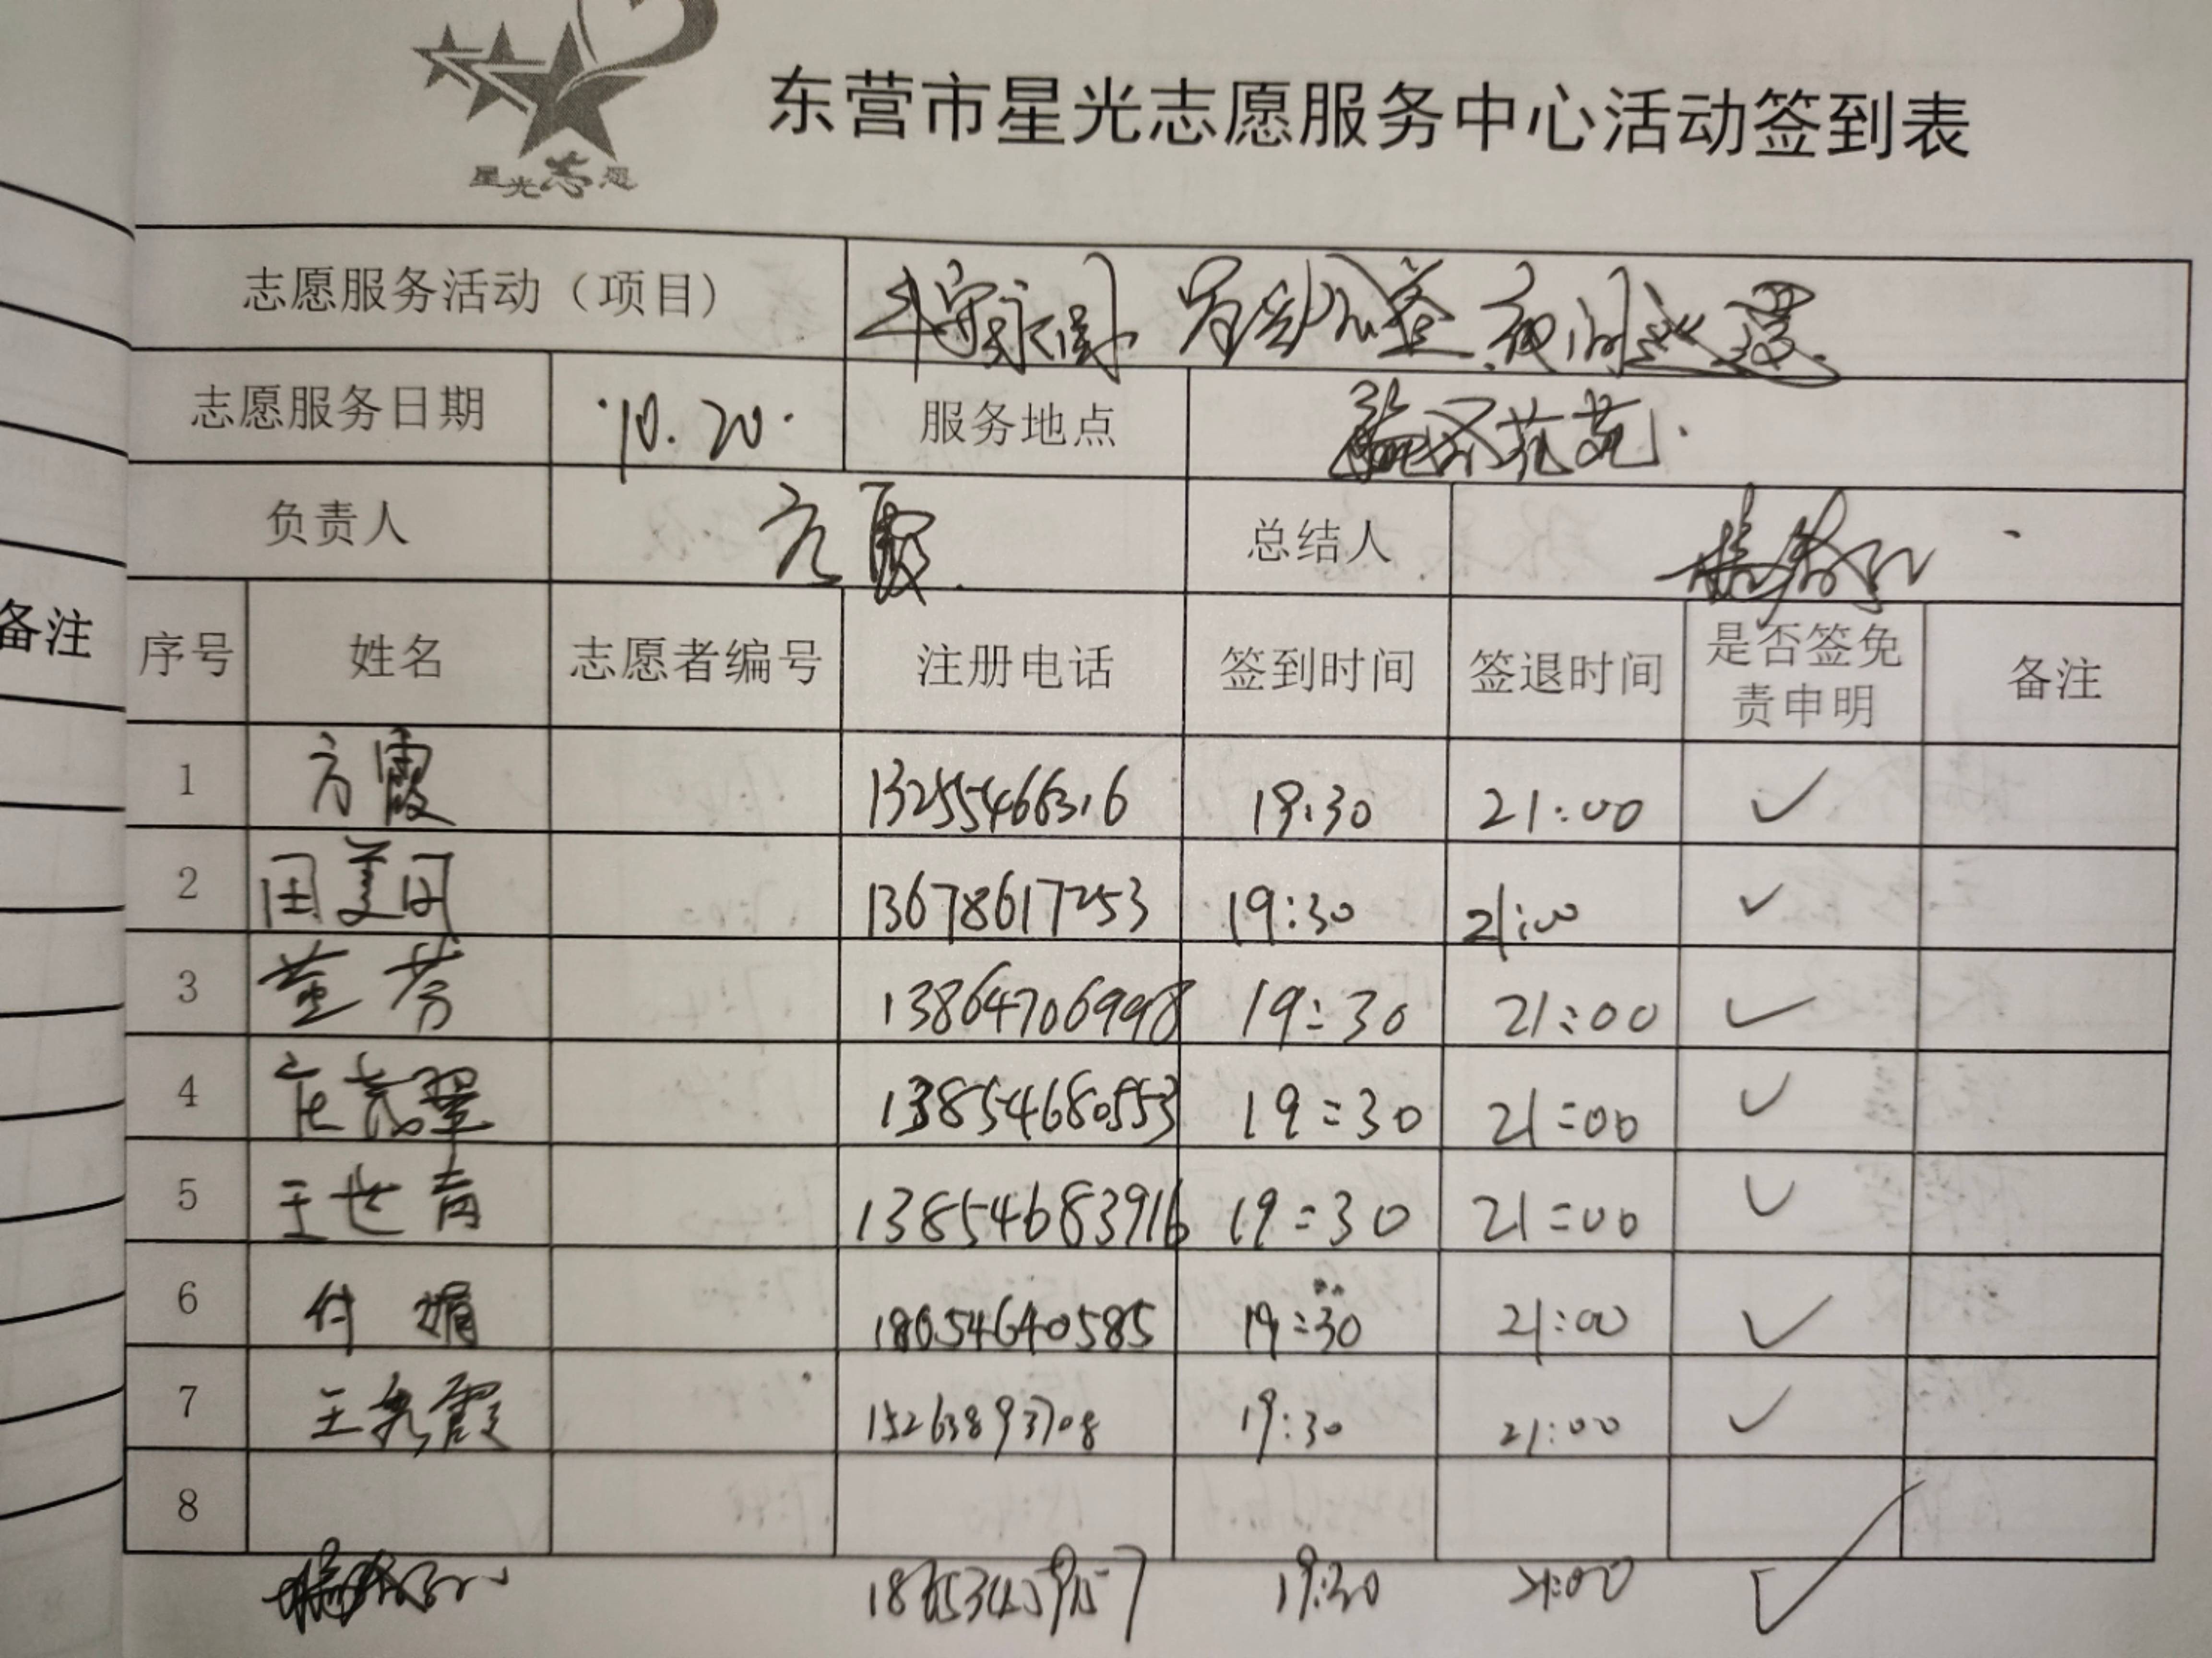 星光志愿
东营市星光志愿服务中心活动签到表
志愿服务活动（项目） 夜间巡逻
志愿服务日期 10.20 服务地点
负责人 方霞 总结人
备注
序号 姓名 志愿者编号 注册电话 签到时间 签退时间 是否签免责申明 备注
1 方霞 13255466316 19:30 21:00 ✓
2 田美丹 13678617253 19:30 21:00 ✓
3 董芳 13864706998 19:30 21:00 ✓
4 13854680553 19:30 21:00 ✓
5 王世青 13854683916 19:30 21:00 ✓
6 付娟 18654640585 19:30 21:00 ✓
7 15263893708 19:30 21:00 ✓
8
19:30 21:00 ✓